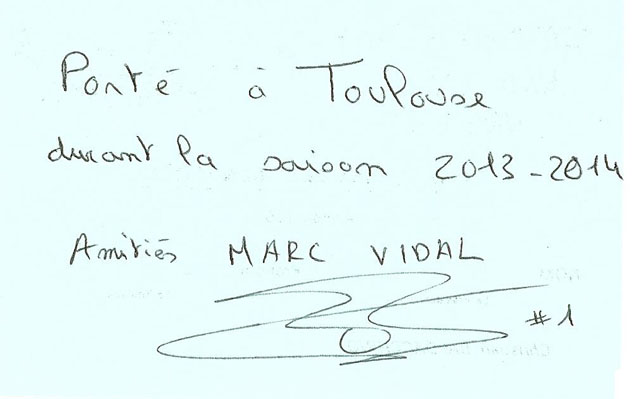 Porté à Toulouse
durant la saison 2013-2014
Amitiés MARC VIDAL
#1